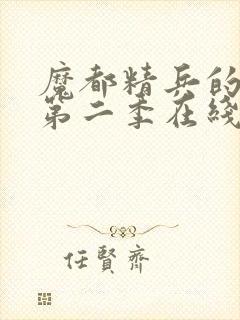 魔都精兵的
第二季在綫
任賢齊